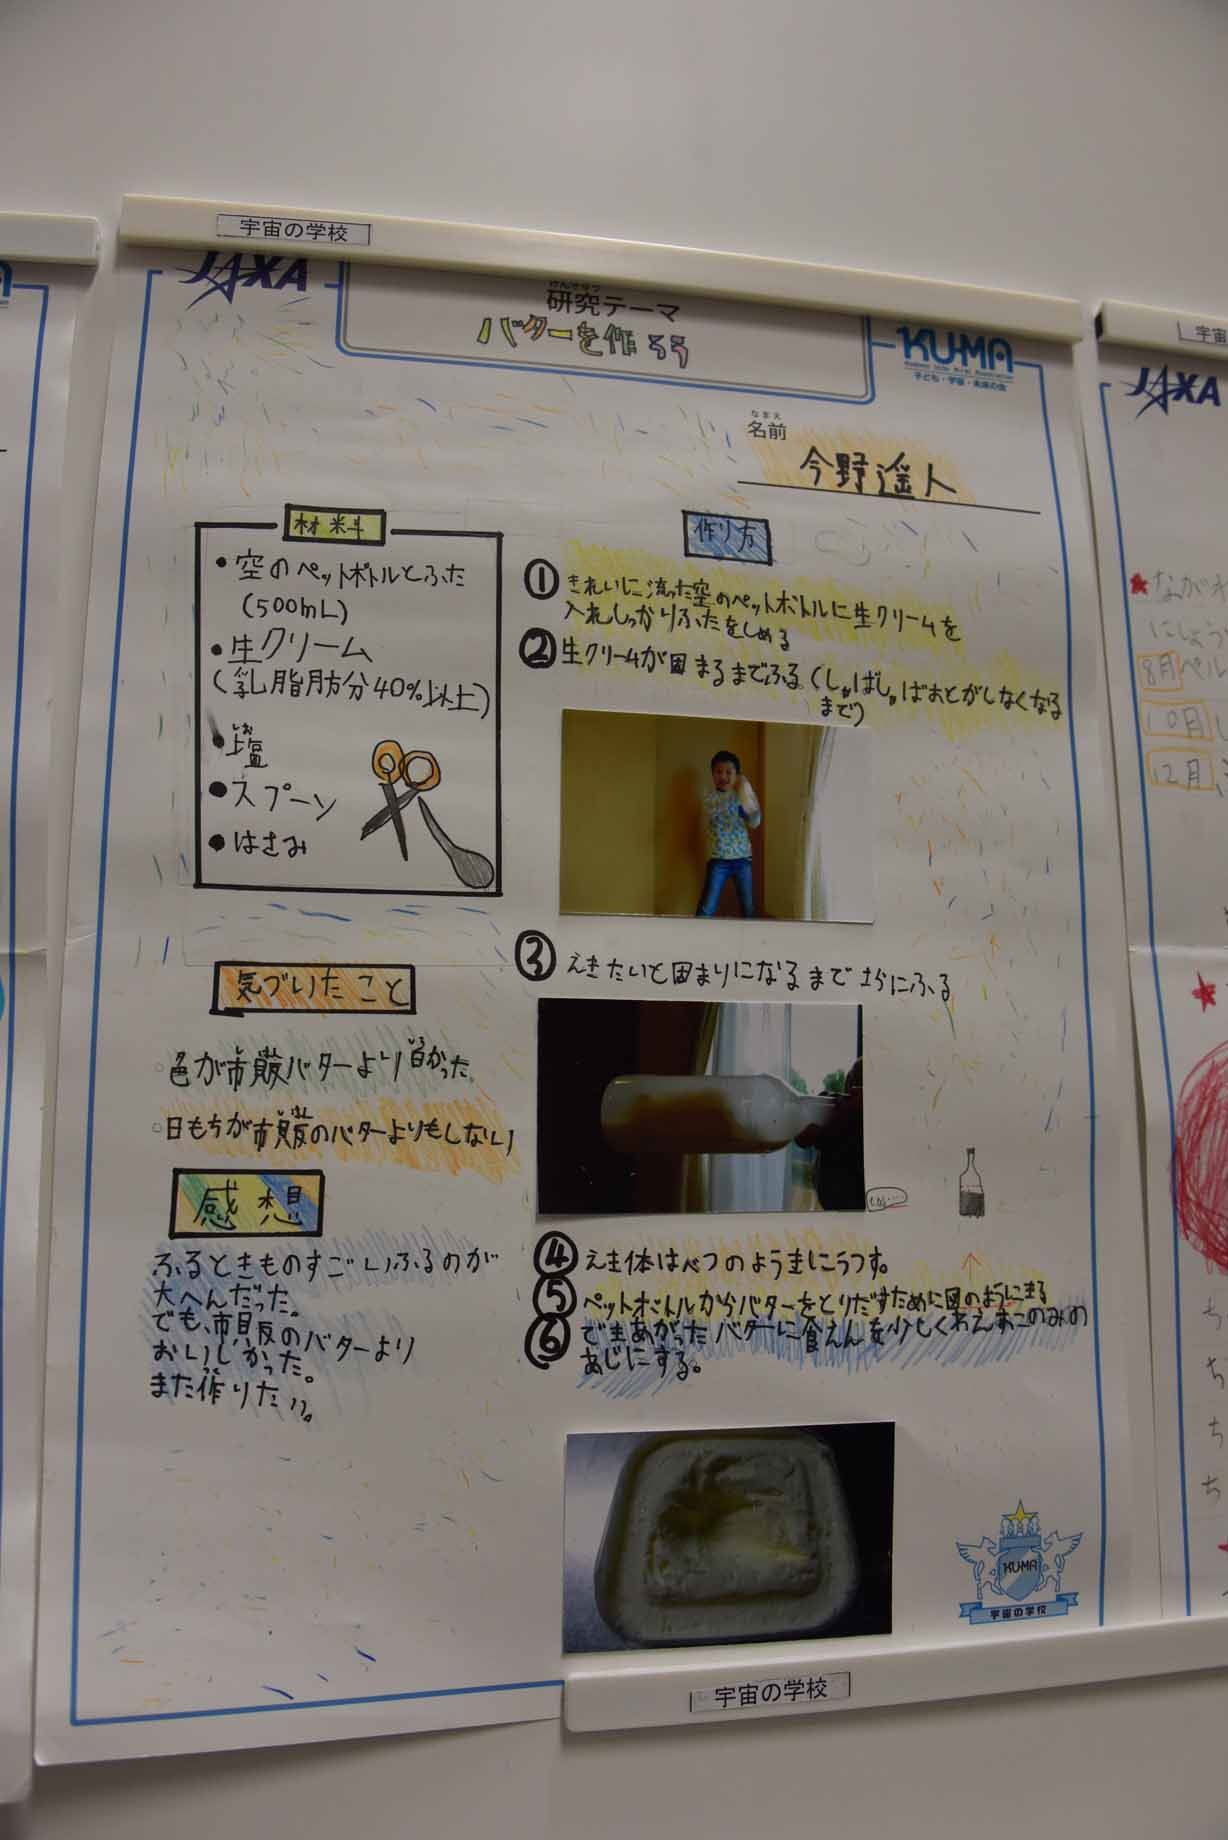 宇宙の学校
JAXA
けんきゅう
研究テーマ
バターを作ろう
KU-MA
子ども・宇宙・未来の会
なまえ
名前
今野遥人
材料
・空のペットボトルとふた
(500mL)
・生クリーム
(乳脂肪分40%以上)
・塩
・スプーン
・はさみ
気づいたこと
色が市販バターより白かった
日もちが市販のバターよりもしない
感想
ふるときものすごいふるのが
大へんだった。
でも、市販のバターより
おいしかった。
また作りたい。
作り方
① きれいに洗った空のペットボトルに生クリームを
入れしっかりふたをしめる
② 生クリームが固まるまでふる。(しゃばしゃばおとがしなくなる
まで)
③ えきたいと固まりになるまでさらにふる
④ えき体はべつのようきにうつす。
⑤ ペットボトルからバターをとりだすために図のようにきる
⑥ できあがったバターに食えんを少しくわえおこのみの
あじにする。
KU-MA
宇宙の学校
宇宙の学校
宇宙
JAXA
8月
10月
12月